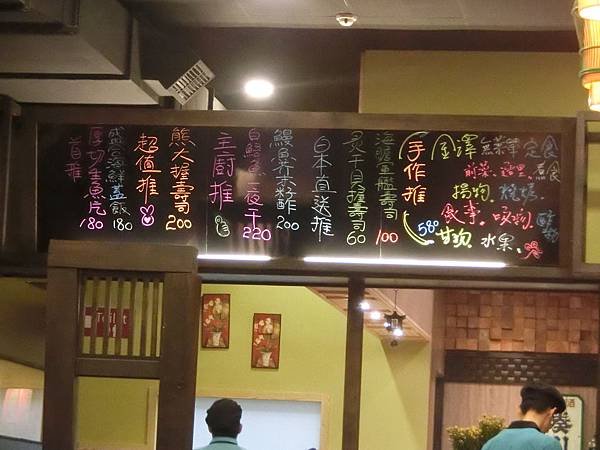 手作推
金澤無菜單定食
前菜、
煮食
揚物、
食事、
甘物、水果、
580
海膽軍艦壽司 100
炙干貝握壽司 60
日本直送推
鰻魚養彩酢 200
白鯧魚一夜干 220
主廚推
熊大握壽司 200
超值推
盛合海鮮蓋飯 180
厚切生魚片 180
首推